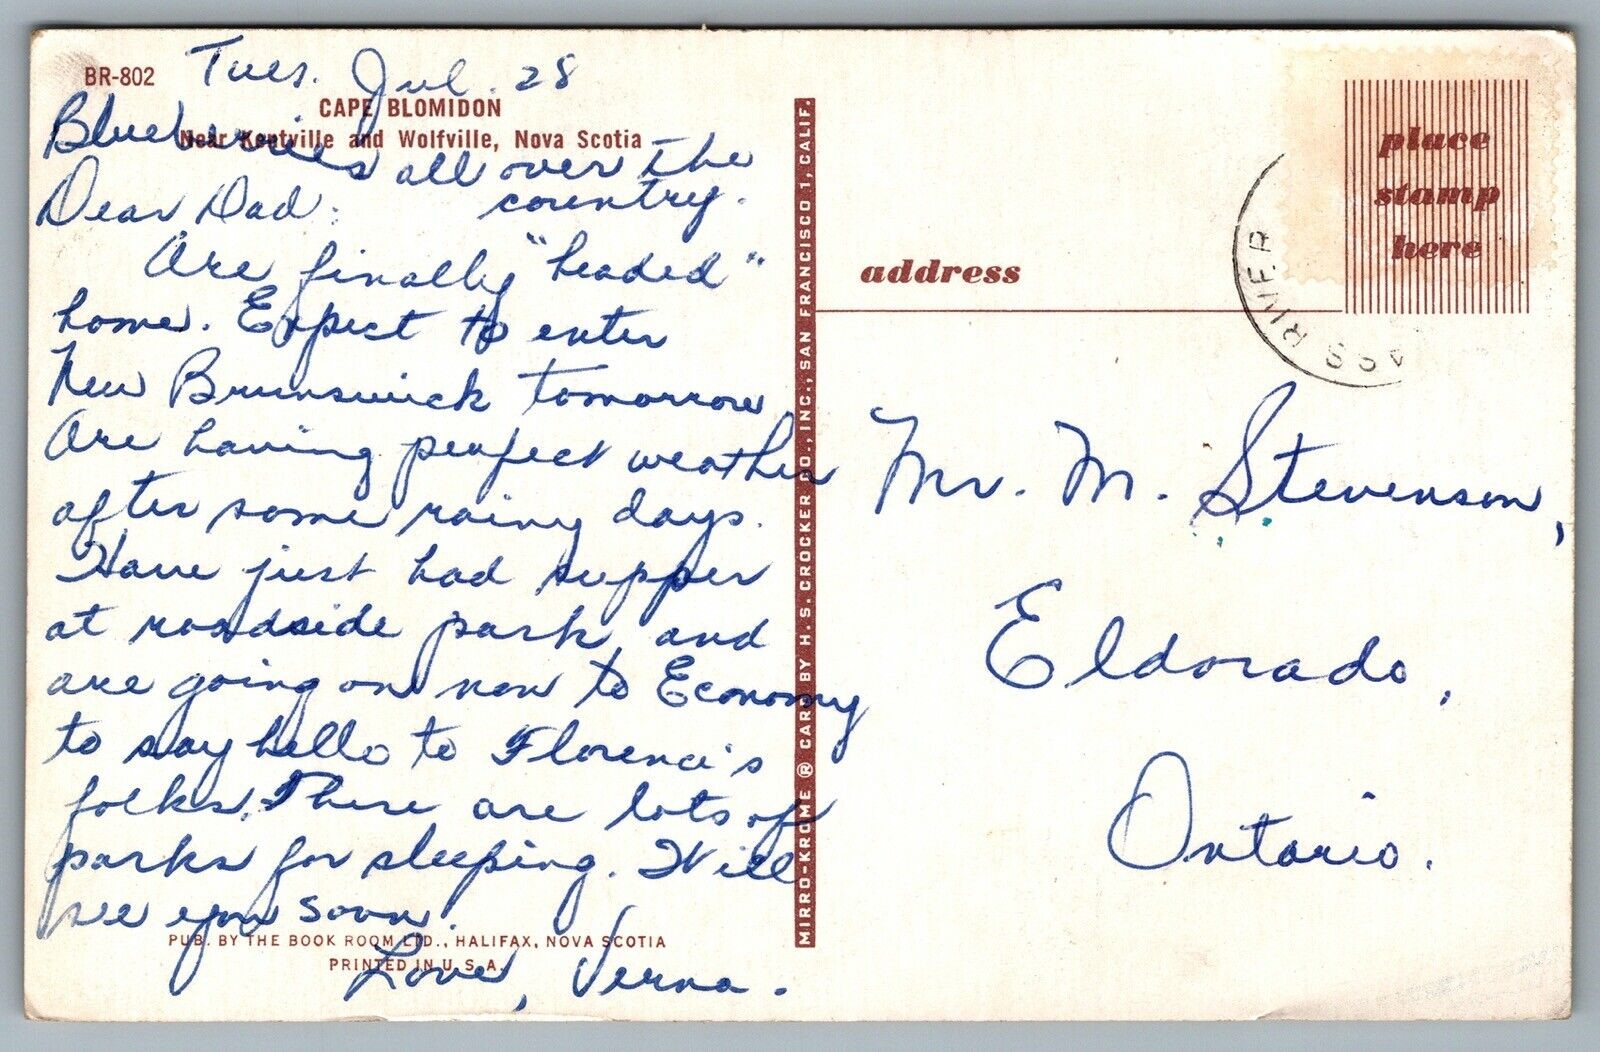 BR-802
Tues. Jul. 28
CAPE BLOMIDON
Near Kentville and Wolfville, Nova Scotia
Blueberries all over the
country.
Dear Dad:
Are finally "headed"
home. Expect to enter
New Brunswick tomorrow.
Are having perfect weather
after some rainy days.
Have just had supper
at roadside park and
are going on now to Economy
to say hello to Florence's
folks. There are lots of
parks for sleeping. Will
see you soon.
Love, Verna.
PUB. BY THE BOOK ROOM LTD., HALIFAX, NOVA SCOTIA
PRINTED IN U.S.A.
MIRRO-KROME ® CARD BY H. S. CROCKER CO., INC., SAN FRANCISCO 1, CALIF.
place
stamp
here
SS RIVER
address
Mr. M. Stevenson,
Eldorado,
Ontario.